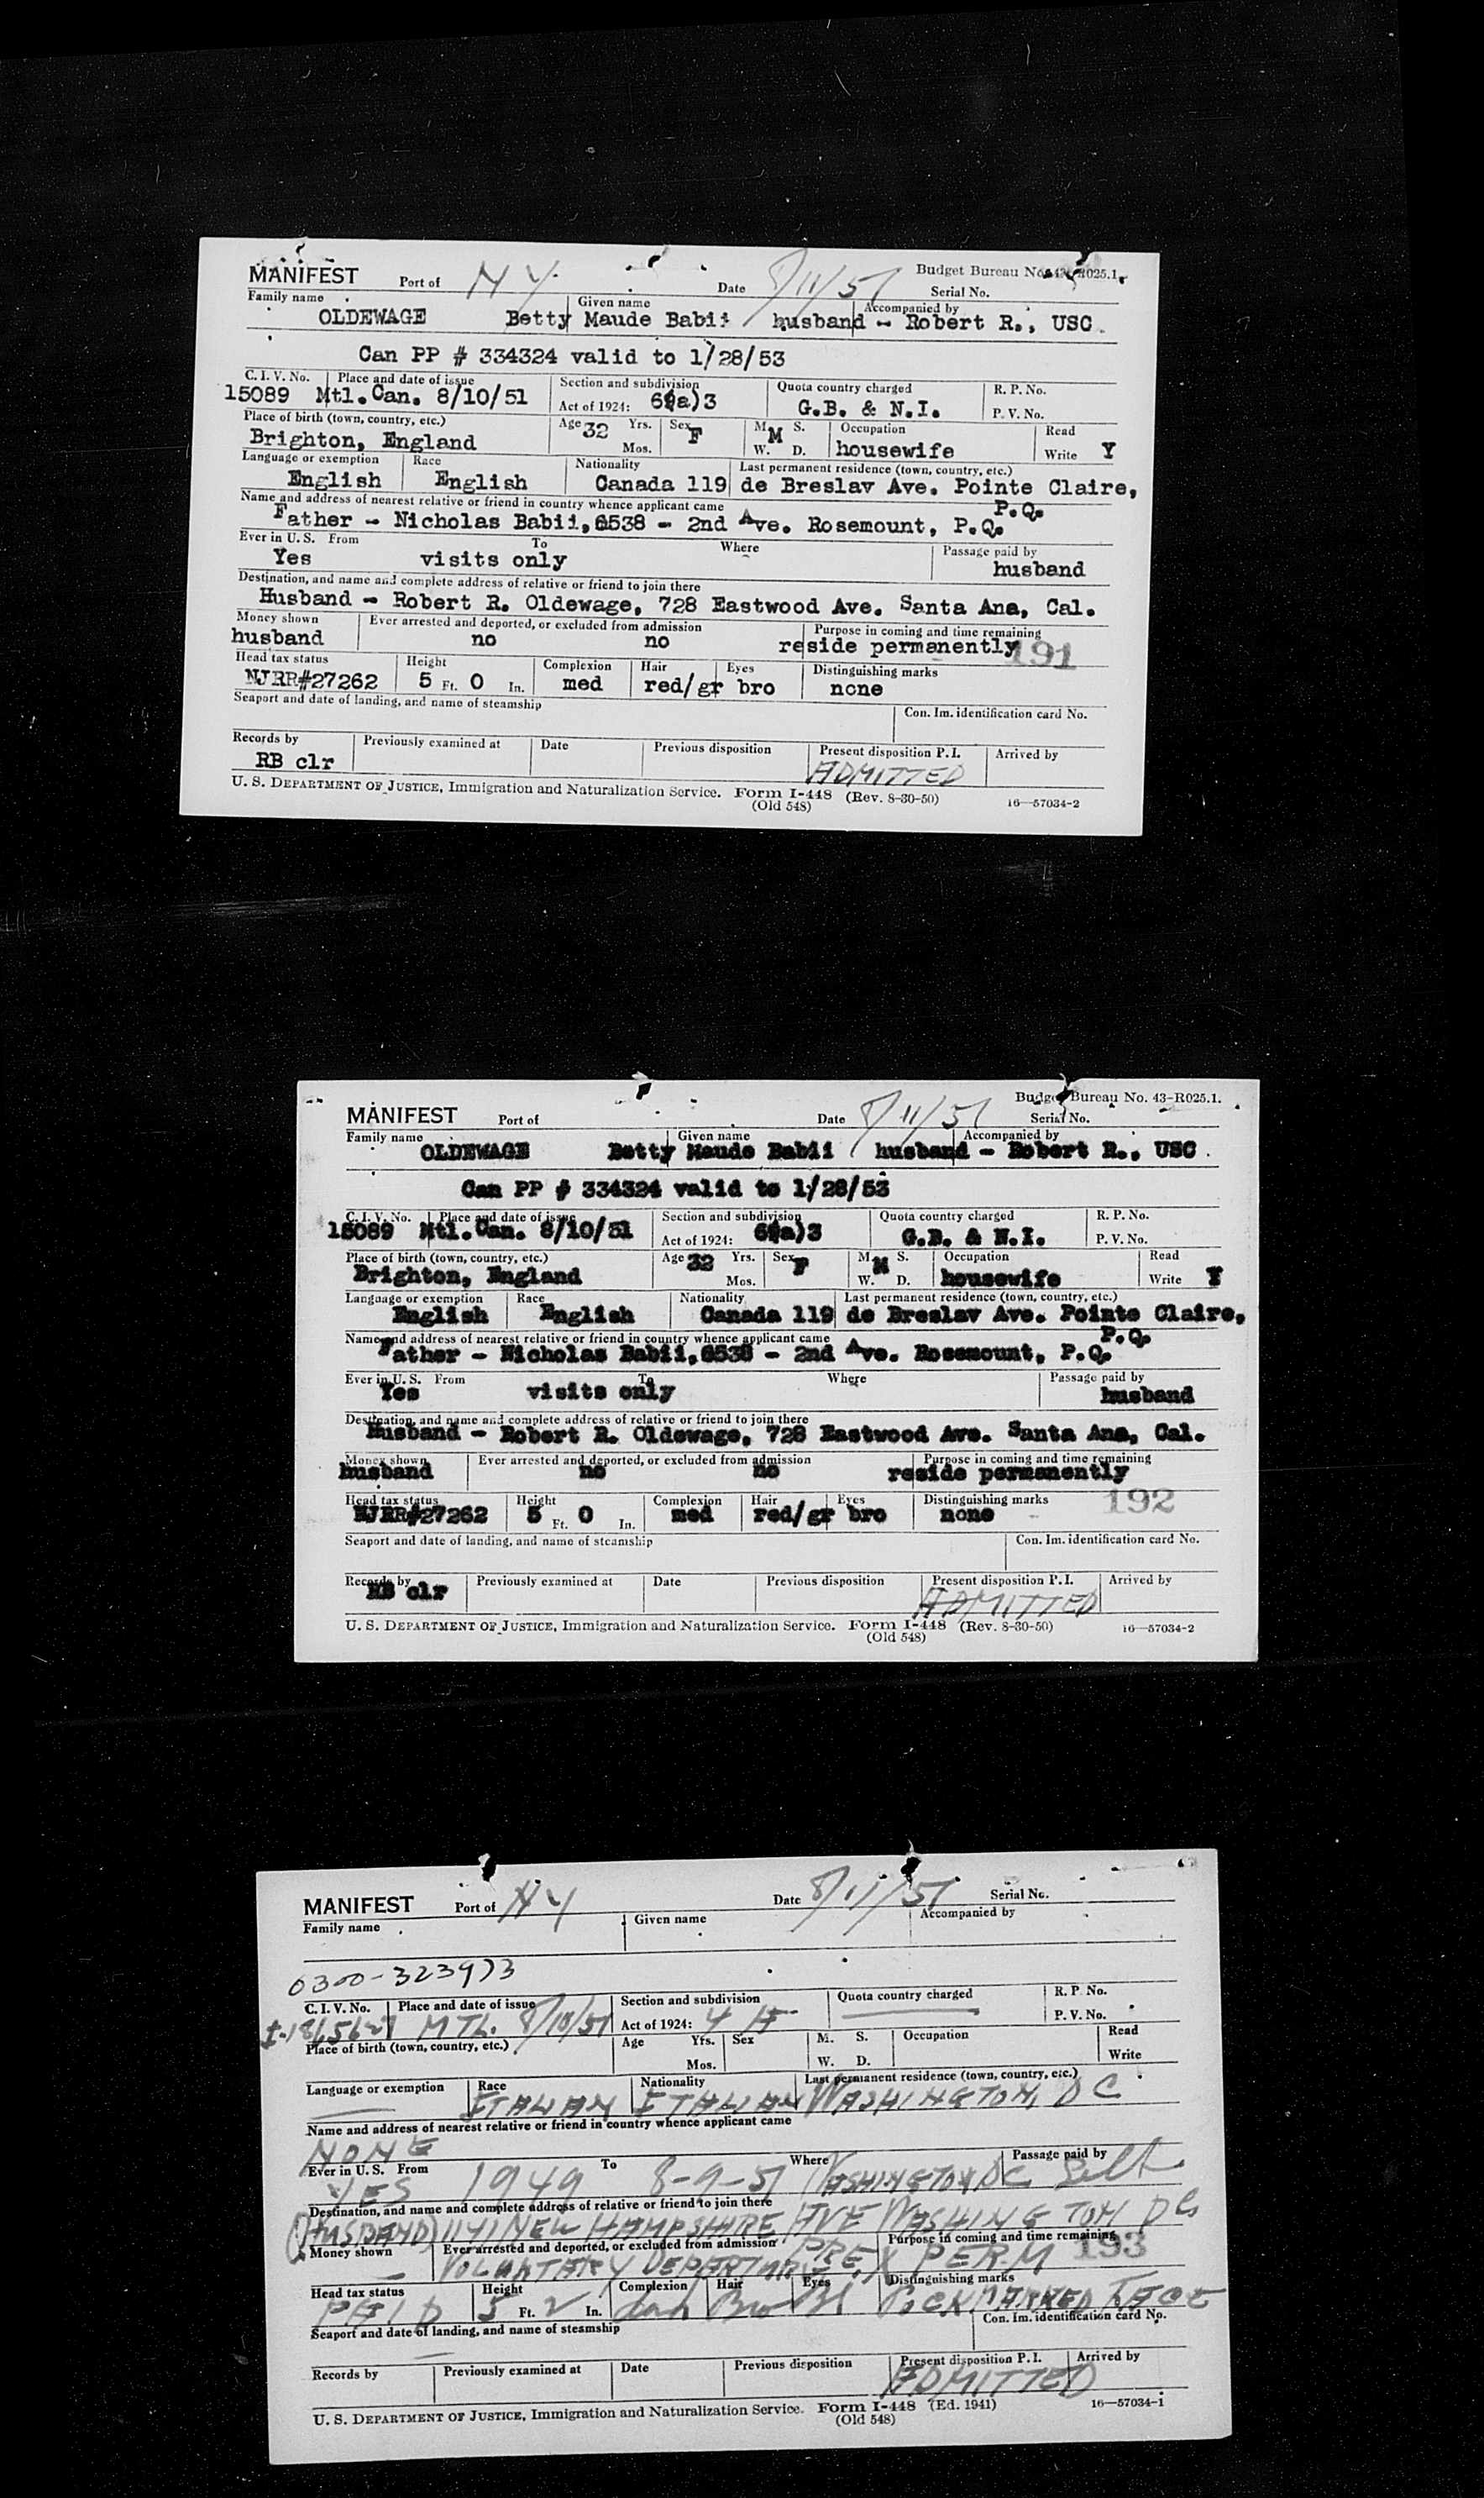 MANIFEST Port of N Y. Date 8/11/51 Budget Bureau No. 43-R025.1.
Serial No.
Family name Given name Accompanied by
OLDEWAGE Betty Maude Babii husband - Robert R., USC.
Can PP # 334324 valid to 1/28/53
C. I. V. No. Place and date of issue Section and subdivision Quota country charged R. P. No.
15089 Mtl.Can. 8/10/51 Act of 1924: 6(a)3 G.B. & N.I. P. V. No.
Place of birth (town, country, etc.) Age 32 Yrs. Sex F M. M S. Occupation Read
Brighton, England Mos. W. D. housewife Write Y
Language or exemption Race Nationality Last permanent residence (town, country, etc.)
English English Canada 119 de Breslav Ave. Pointe Claire,
Name and address of nearest relative or friend in country whence applicant came P.Q.
Father - Nicholas Babii, 6538 - 2nd Ave. Rosemount, P.Q.
Ever in U. S. From To Where Passage paid by
Yes visits only husband
Destination, and name and complete address of relative or friend to join there
Husband - Robert R. Oldewage, 728 Eastwood Ave. Santa Ana, Cal.
Money shown Ever arrested and deported, or excluded from admission Purpose in coming and time remaining
husband no no reside permanently 191
Head tax status Height Complexion Hair Eyes Distinguishing marks
NJRR#27262 5 Ft. 0 In. med red/gr bro none
Seaport and date of landing, and name of steamship Con. Im. identification card No.
Records by Previously examined at Date Previous disposition Present disposition P. I. Arrived by
RB clr ADMITTED
U. S. DEPARTMENT OF JUSTICE, Immigration and Naturalization Service. Form I-448 (Rev. 8-30-50) 16—57034-2
(Old 548)
MANIFEST Port of Date 8/11/51 Budget Bureau No. 43-R025.1.
Serial No.
Family name Given name Accompanied by
OLDEWAGE Betty Maude Babii husband - Robert R., USC.
Can PP # 334324 valid to 1/28/53
C. I. V. No. Place and date of issue Section and subdivision Quota country charged R. P. No.
15089 Mtl.Can. 8/10/51 Act of 1924: 6(a)3 G.B. & N.I. P. V. No.
Place of birth (town, country, etc.) Age 32 Yrs. Sex F M. M S. Occupation Read
Brighton, England Mos. W. D. housewife Write Y
Language or exemption Race Nationality Last permanent residence (town, country, etc.)
English English Canada 119 de Breslav Ave. Pointe Claire,
Name and address of nearest relative or friend in country whence applicant came P.Q.
Father - Nicholas Babii, 6538 - 2nd Ave. Rosemount, P.Q.
Ever in U. S. From To Where Passage paid by
Yes visits only husband
Destination, and name and complete address of relative or friend to join there
Husband - Robert R. Oldewage, 728 Eastwood Ave. Santa Ana, Cal.
Money shown Ever arrested and deported, or excluded from admission Purpose in coming and time remaining
husband no no reside permanently
Head tax status Height Complexion Hair Eyes Distinguishing marks 192
NJRR#27262 5 Ft. 0 In. med red/gr bro none
Seaport and date of landing, and name of steamship Con. Im. identification card No.
Records by Previously examined at Date Previous disposition Present disposition P. I. Arrived by
RB clr ADMITTED
U. S. DEPARTMENT OF JUSTICE, Immigration and Naturalization Service. Form I-448 (Rev. 8-30-50) 16—57034-2
(Old 548)
MANIFEST Port of N Y Date 8/11/51 Serial No.
Family name Given name Accompanied by
0300-323973
C. I. V. No. Place and date of issue Section and subdivision Quota country charged R. P. No.
MTL. 8/10/51 Act of 1924: 4 A P. V. No.
Place of birth (town, country, etc.) Age Yrs. Sex M. S. Occupation Read
Mos. W. D. Write
Language or exemption Race Nationality Last permanent residence (town, country, etc.)
ITALIAN ITALIAN WASHINGTON, DC
Name and address of nearest relative or friend in country whence applicant came
NONE
Ever in U. S. From To Where Passage paid by
YES 1949 8-9-51 WASHINGTON DC Self
Destination, and name and complete address of relative or friend to join there
(HUSBAND) 1141 NEW HAMPSHIRE AVE WASHINGTON DC
Money shown Ever arrested and deported, or excluded from admission Purpose in coming and time remaining
VOLUNTARY DEPARTURE PRE X PERM 193
Head tax status Height Complexion Hair Eyes Distinguishing marks
PAID 5 Ft. 2 In. dark Bro Bl POCK MARKED FACE
Seaport and date of landing, and name of steamship Con. Im. identification card No.
Records by Previously examined at Date Previous disposition Present disposition P. I. Arrived by
ADMITTED
U. S. DEPARTMENT OF JUSTICE, Immigration and Naturalization Service. Form I-448 (Ed. 1941) 16—57034-1
(Old 548)